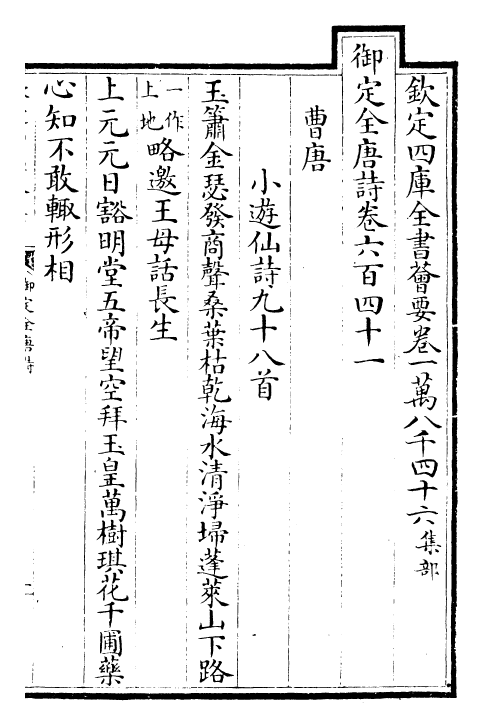 欽定四庫全書薈要卷一萬八千四十六集部
御定全唐詩卷六百四十一
曹唐
小遊仙詩九十八首
玉簫金瑟發商聲桑葉枯乾海水清淨埽蓬萊山下路
一作上地略邀王母話長生
上元元日豁明堂五帝望空拜玉皇萬樹琪花千圃藥
心知不敢輙形相
御定全唐詩